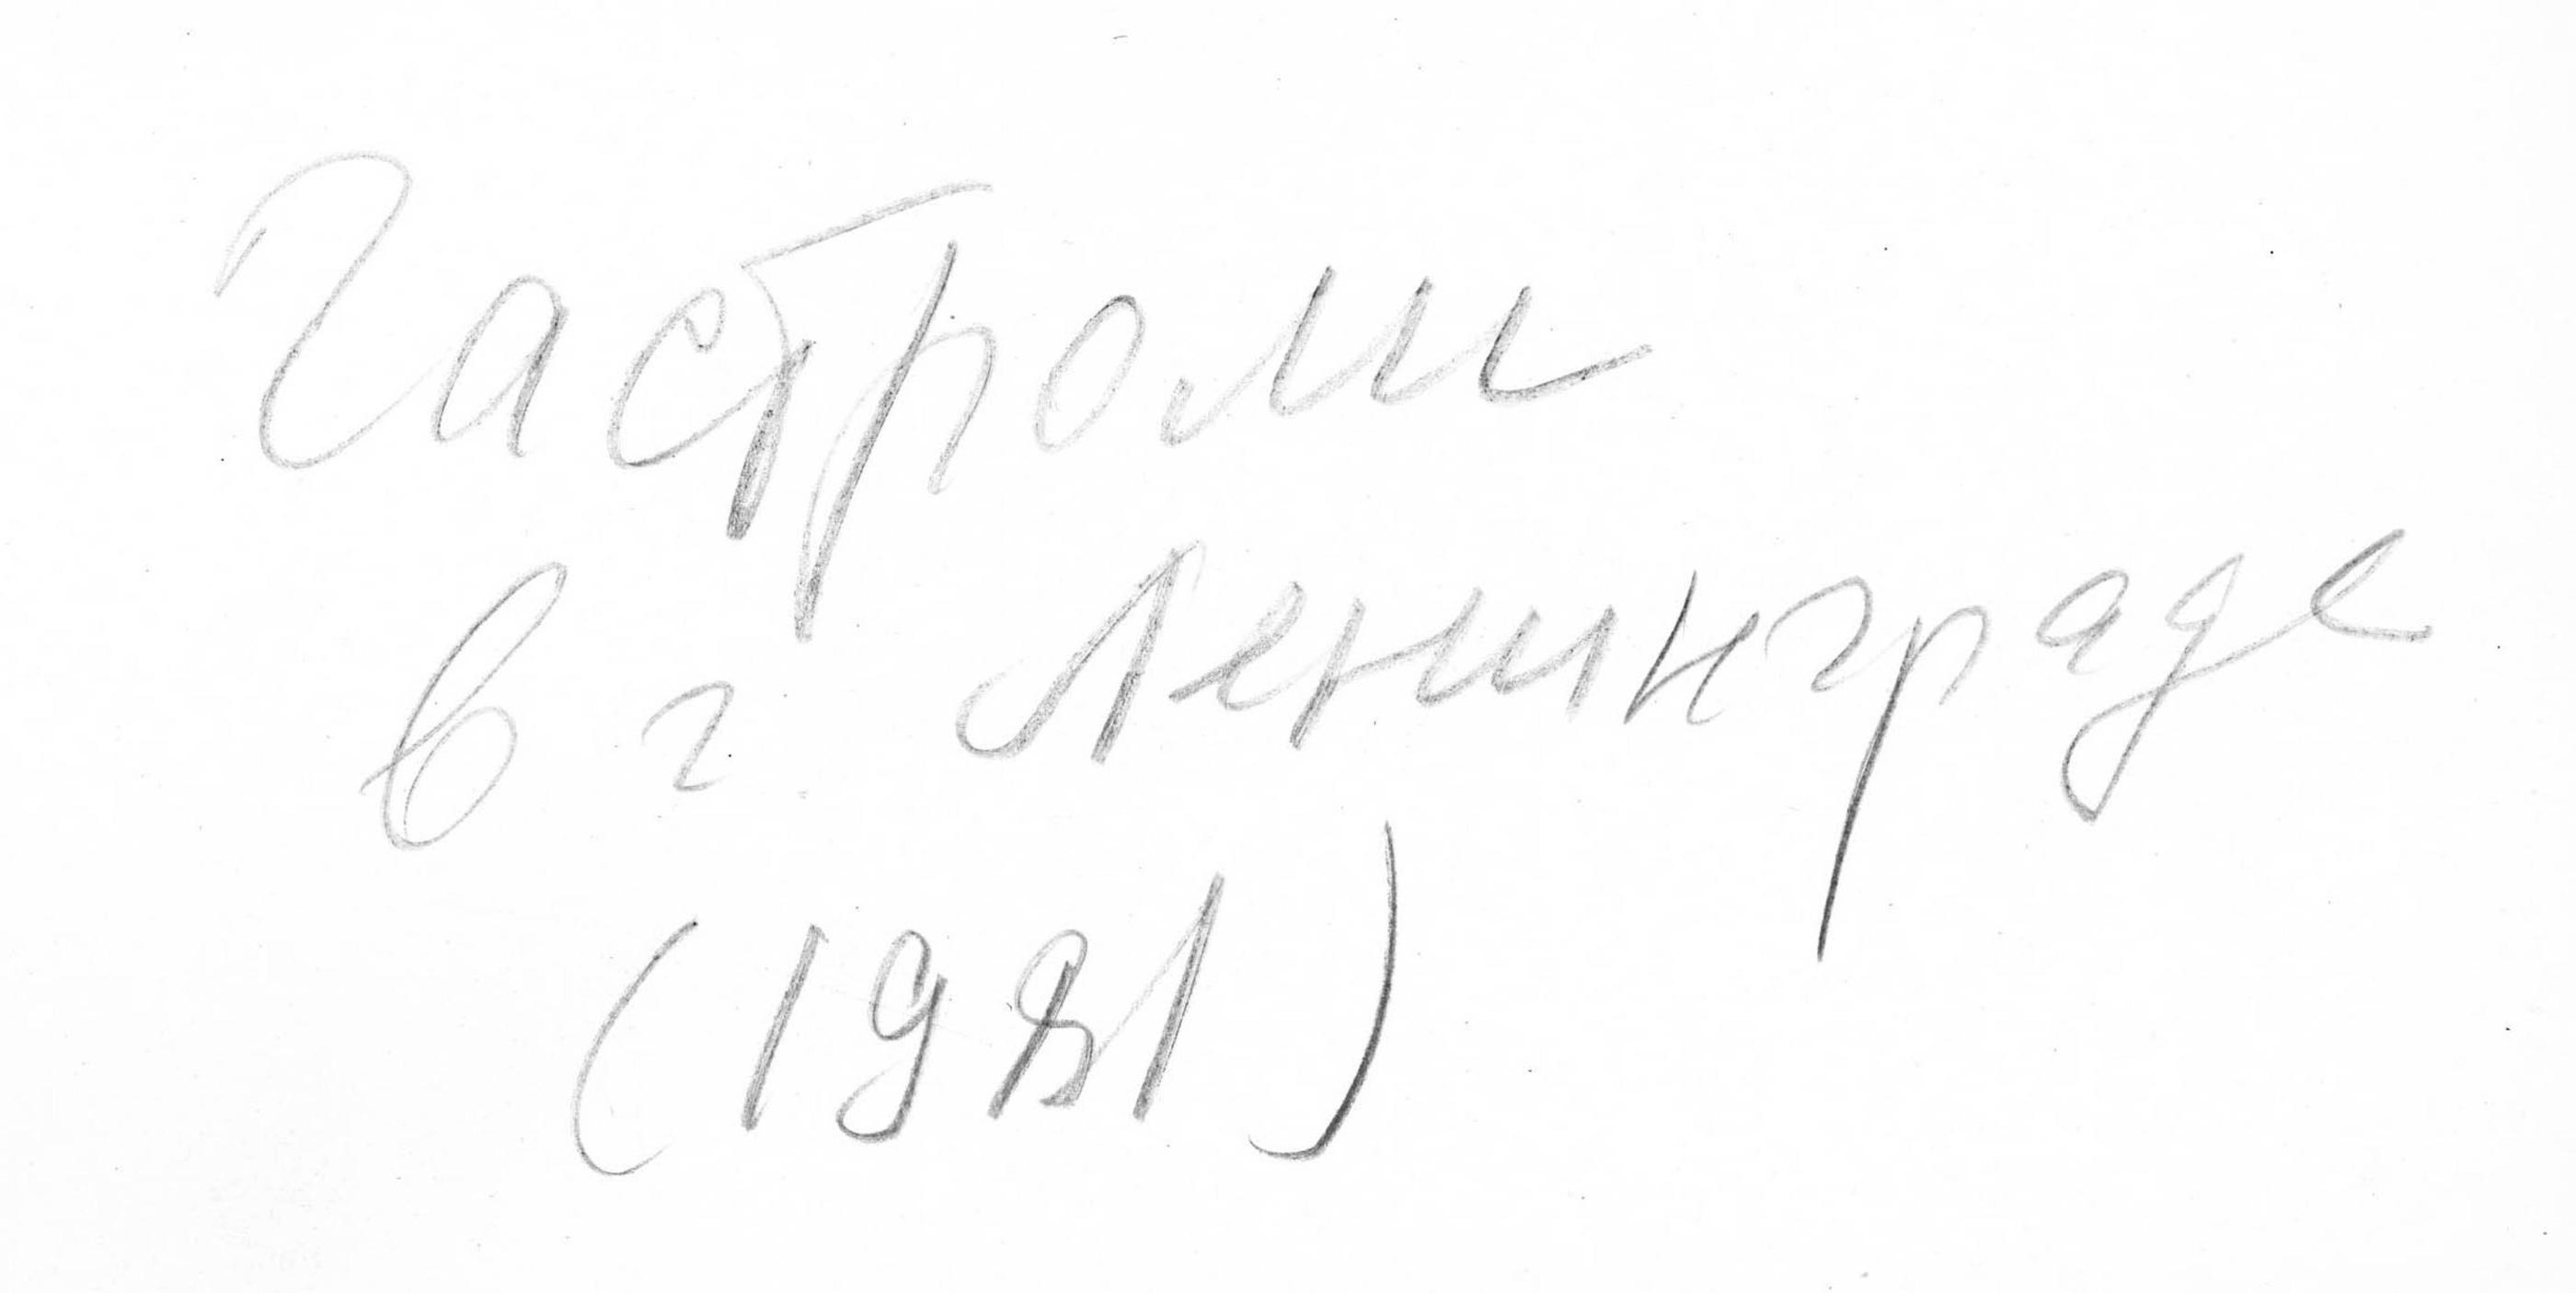 Гастроли
в г Ленинграде
(1981)